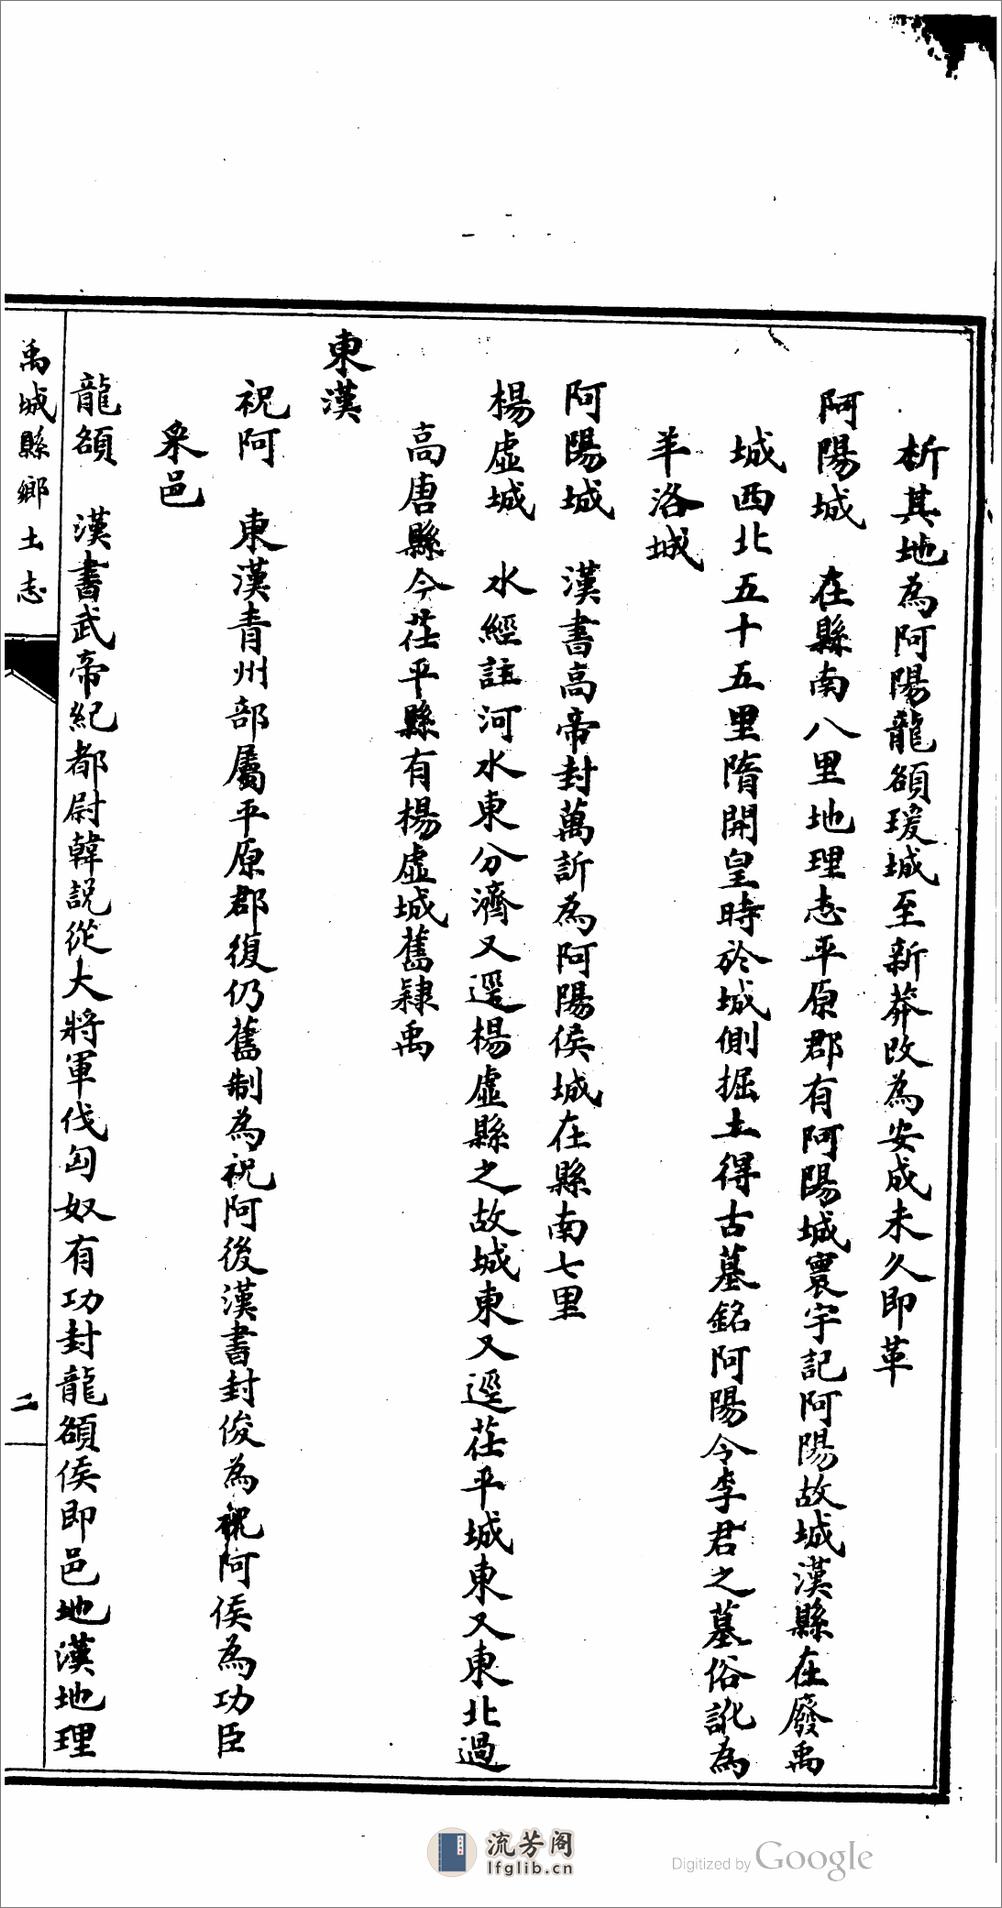 析其地為阿陽龍頟瑗城至新莽改為安成未久即革
阿陽城　在縣南八里地理志平原郡有阿陽城寰宇記阿陽故城漢縣在廢禹
城西北五十五里隋開皇時於城側掘土得古墓銘阿陽令李君之墓俗訛為
羊洛城
阿陽城　漢書高帝封萬訢為阿陽侯城在縣南七里
楊虛城　水經註河水東分濟又逕楊虛縣之故城東又逕茌平城東又東北過
高唐縣今茌平縣有楊虛城舊隸禹
東漢
祝阿　東漢青州部屬平原郡復仍舊制為祝阿後漢書封俊為祝阿侯為功臣
采邑
龍頟　漢書武帝紀都尉韓説從大將軍伐匈奴有功封龍頟侯即邑地漢地理
禹城縣鄉土志
二
流芳阁
lfglib.cn
Digitized by Google